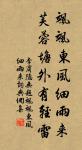 颯颯東風細雨來
芙蓉塘外有輕雷
李商隱無題颯颯東風
細雨來詞典網集